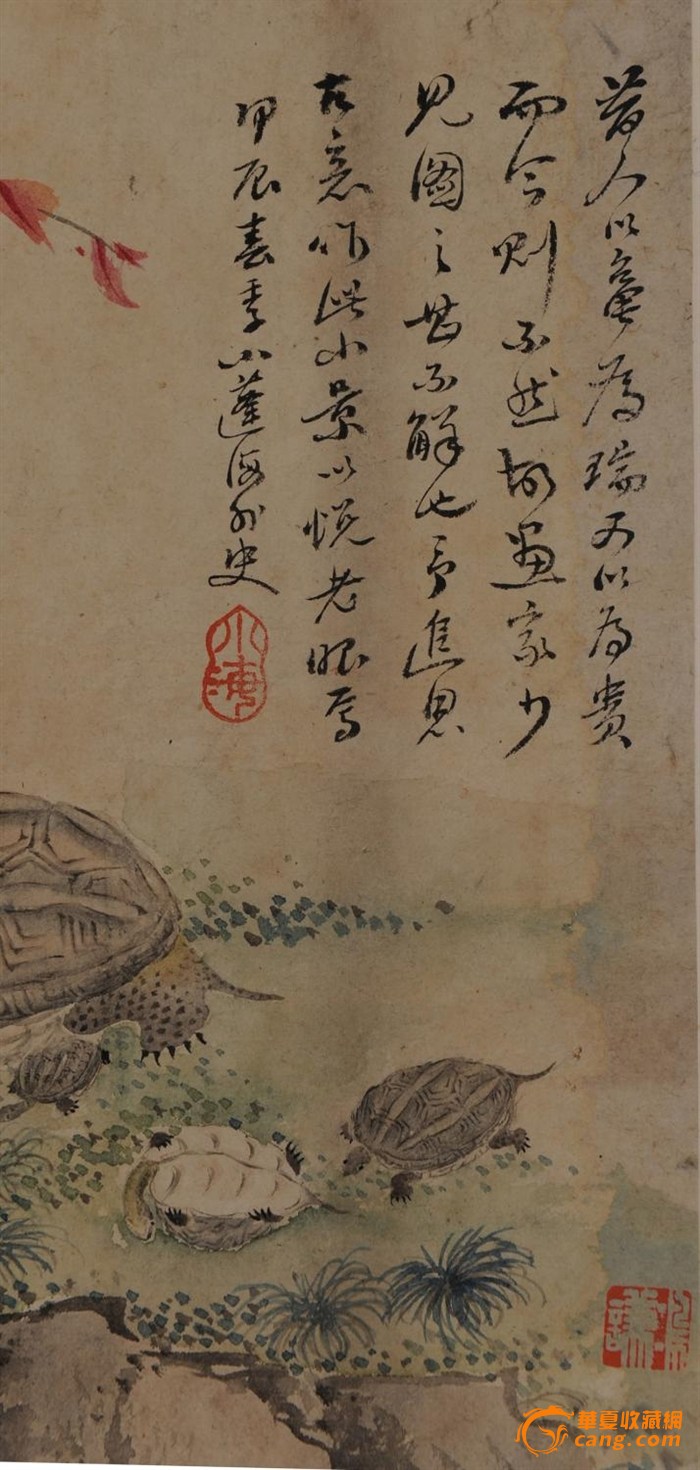 昔人以龜為瑞又以為貴
而今則不然故畫家少
見圖之甚不解也予追思
古意作此小景以悦老眼焉
甲辰春季小蓬海外史
小海
華夏收藏網
cang.com